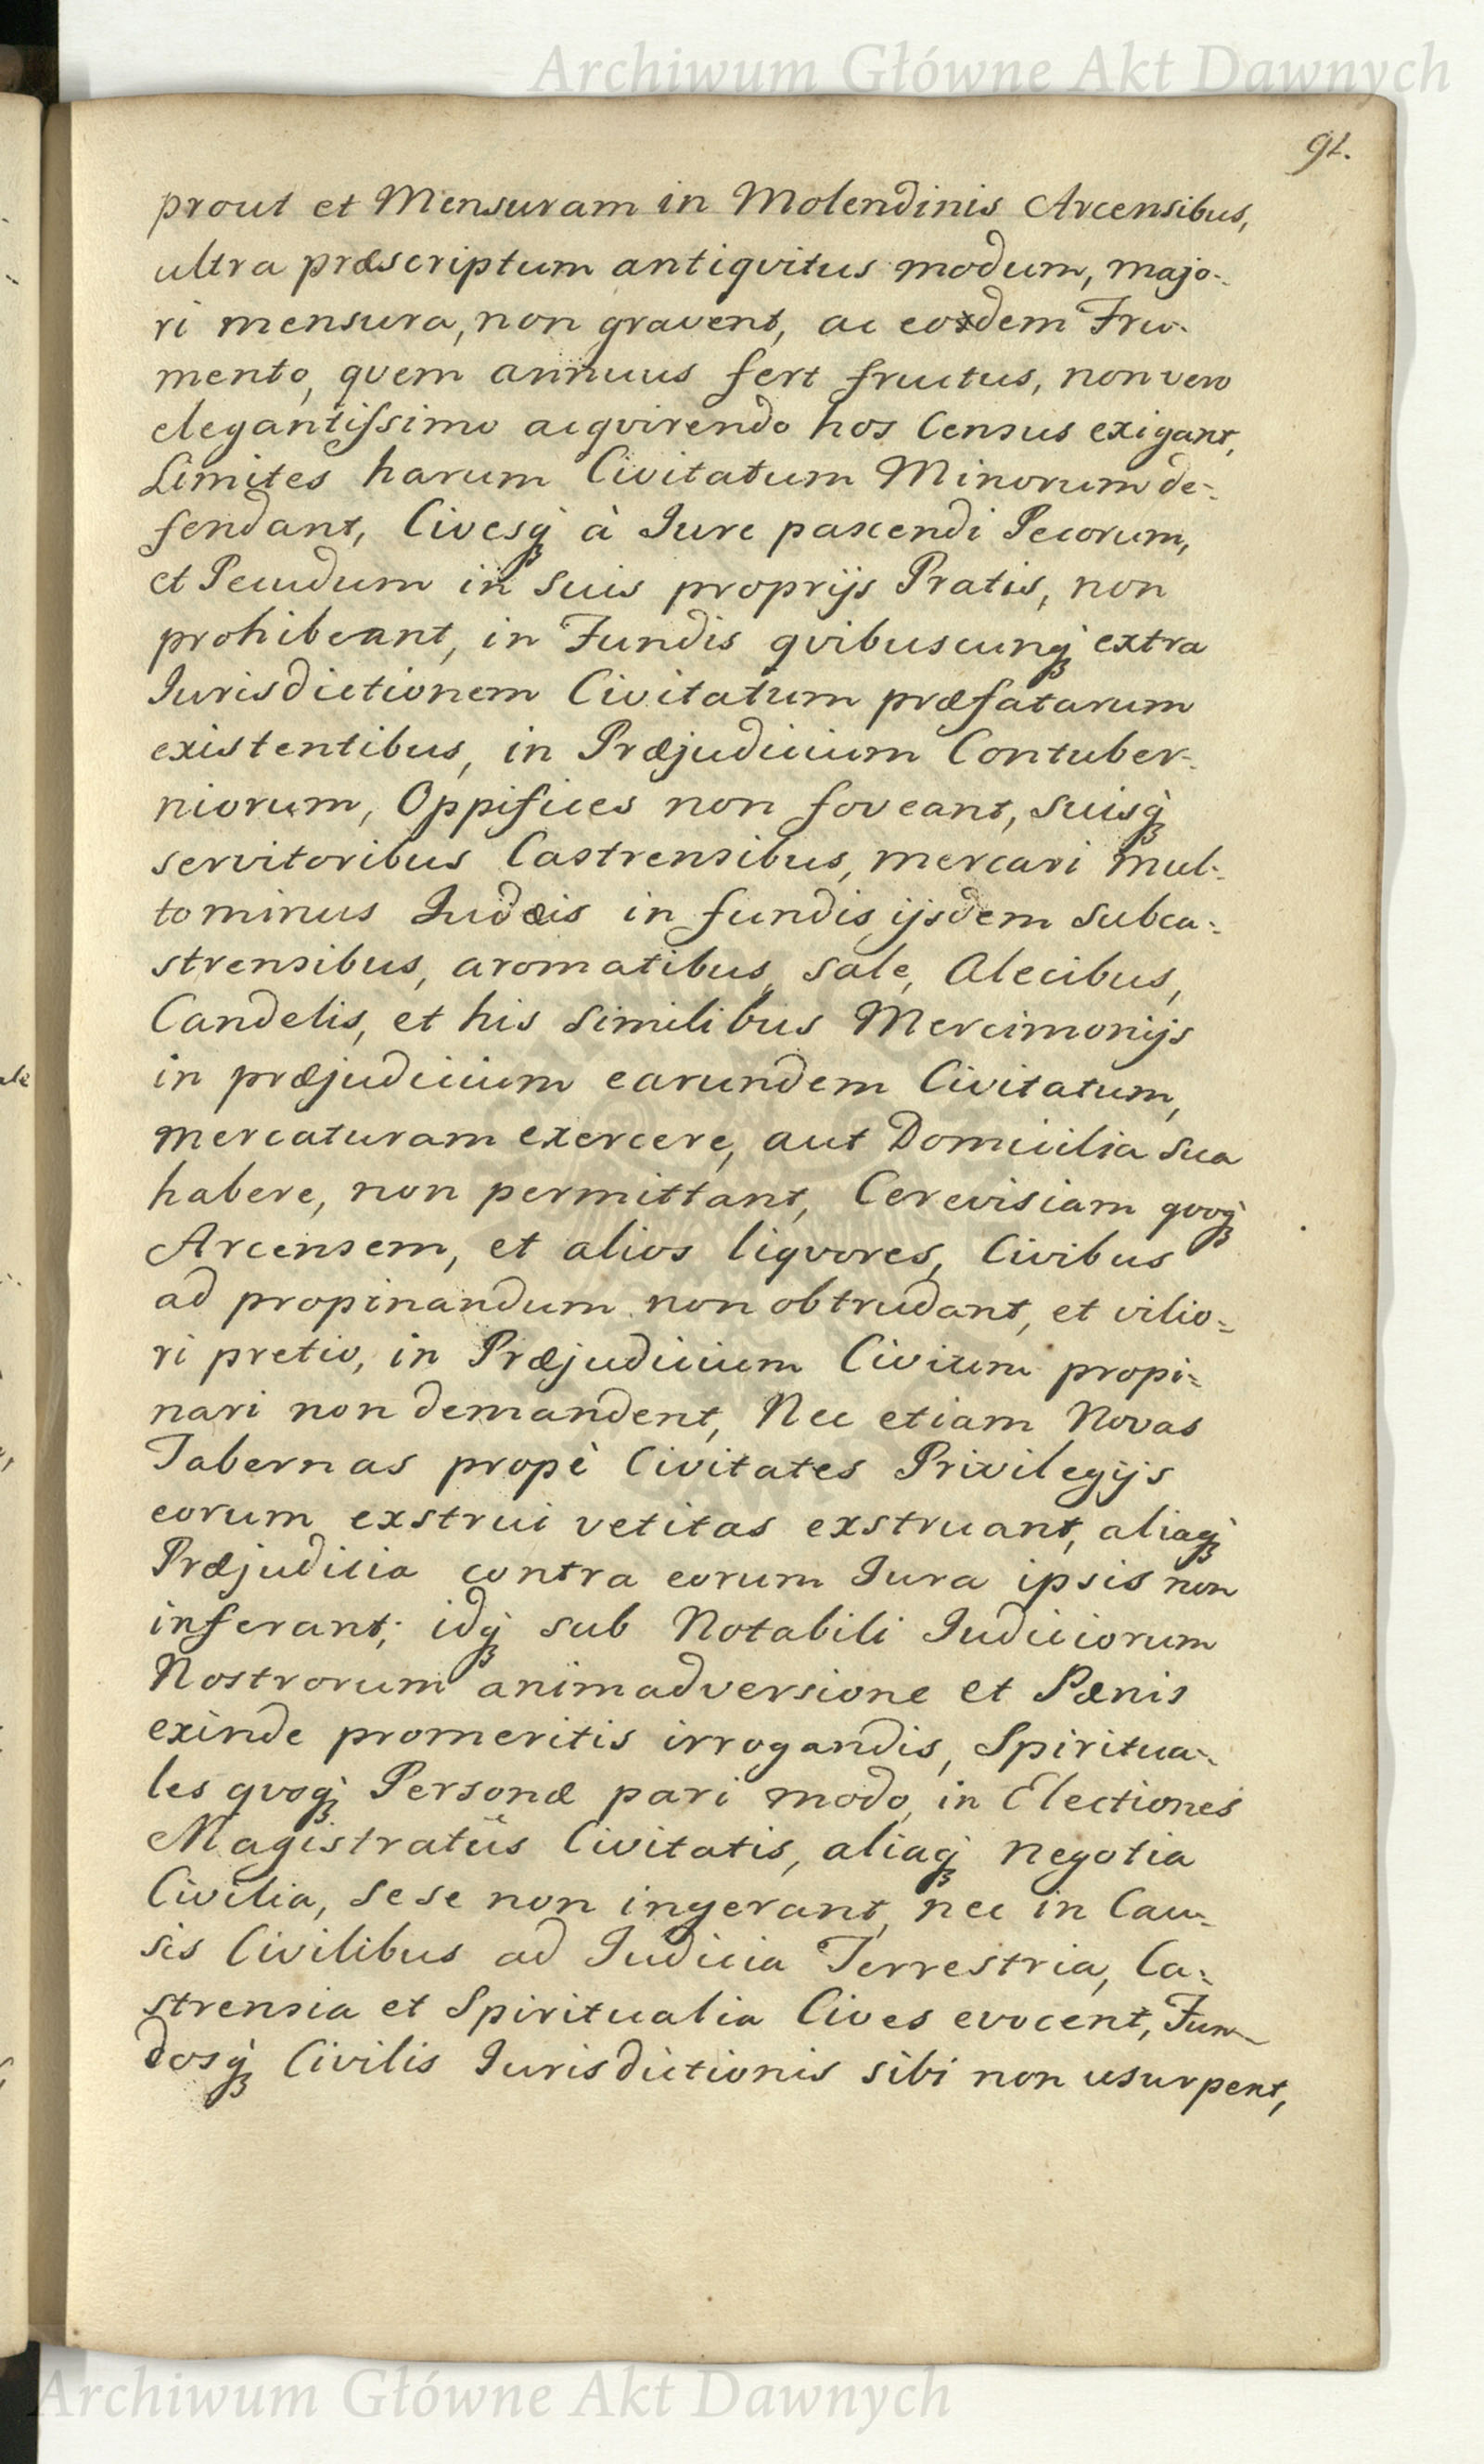 Archiwum Główne Akt Dawnych
91.
prout et Mensuram in Molendinis Arcensibus,
ultra præscriptum antiqvitus modum, majo-
ri mensura, non gravent, ac eodem Fru-
mento, qvem annuus fert fructus, non vero
elegantissimo acqvirendo hos Census exigant,
Limites harum Civitatum Minorum de-
fendant, Civesq́ à Iure pascendi Pecorum,
et Pecudum in suis proprijs Pratis, non
prohibeant, in Fundis qvibuscunq́ extra
Iurisdictionem Civitatum præfatarum
existentibus, in Præjudicium Contuber-
niorum, Oppifices non foveant, suisq́
servitoribus Castrensibus, mercari mul-
tominus Iudæis in fundis ijsdem subca-
strensibus, aromatibus, sale, Alecibus,
Candelis, et his similibus Mercimonijs
in præjudicium earundem Civitatum,
mercaturam exercere, aut Domicilia sua
habere, non permittant, Cerevisiam qvoq́
Arcensem, et alios liqvores, Civibus
ad propinandum non obtrudant, et vilio-
ri pretio, in Præjudicium Civium propi-
nari non demandent, Nec etiam Novas
Tabernas propè Civitates Privilegijs
eorum exstrui vetitas exstruant, aliaq́
Præjudicia contra eorum Iura ipsis non
inferant; idq́ sub Notabili Iudiciorum
Nostrorum animadversione et Pænis
exinde promeritis irrogandis, Spiritua-
les qvoq́ Personæ pari modo, in Electiones
Magistratûs Civitatis, aliaq́ negotia
Civilia, sese non ingerant, nec in Cau-
sis Civilibus ad Iudicia Terrestria, Ca-
strensia et Spiritualia Cives evocent, Fun-
dosq́ Civilis Iurisdictionis sibi non usurpent,
Archiwum Główne Akt Dawnych